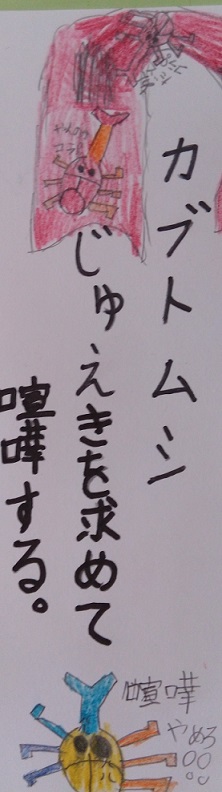 カブトムシ
じゅえきを求めて
喧嘩する。
喧嘩
やめろ